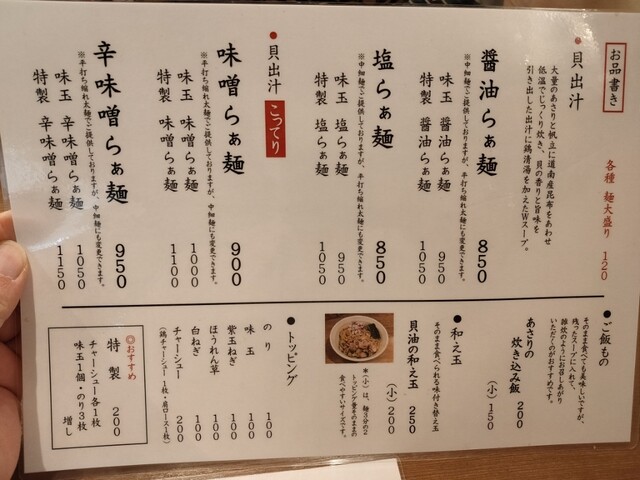 お品書き
各種 麺大盛り 120
●貝出汁
大量のあさりと帆立に道南産昆布をあわせ
低温でじっくり炊き、貝の香りと旨味を
引き出した出汁に鶏清湯を加えたWスープ。
醤油らぁ麺 850
※中細麺でご提供しておりますが、平打ち縮れ太麺にも変更できます。
味玉 醤油らぁ麺 950
特製 醤油らぁ麺 1050
塩らぁ麺 850
※中細麺でご提供しておりますが、平打ち縮れ太麺にも変更できます。
味玉 塩らぁ麺 950
特製 塩らぁ麺 1050
●貝出汁 こってり
味噌らぁ麺 900
※平打ち縮れ太麺でご提供しておりますが、中細麺にも変更できます。
味玉 味噌らぁ麺 1000
特製 味噌らぁ麺 1100
辛味噌らぁ麺 950
※平打ち縮れ太麺でご提供しておりますが、中細麺にも変更できます。
味玉 辛味噌らぁ麺 1050
特製 辛味噌らぁ麺 1150
●ご飯もの
そのまま食べても美味しいですが、
残ったスープに入れて、
雑炊のようにお召しあがり
いただくのがおすすめです。
あさりの炊き込み飯 200
(小) 150
●和え玉
そのまま食べられる味付き替え玉
貝油の和え玉 250
(小) 200
※(小)は、麺3分の2
トッピング量そのままの
食べやすいサイズです。
●トッピング
のり 100
味玉 100
紫玉ねぎ 100
ほうれん草 100
白ねぎ 100
チャーシュー 200
(鶏チャーシュー1枚・肩ロース1枚)
◎おすすめ
特製 200
チャーシュー各1枚
味玉1個・のり3枚
増し